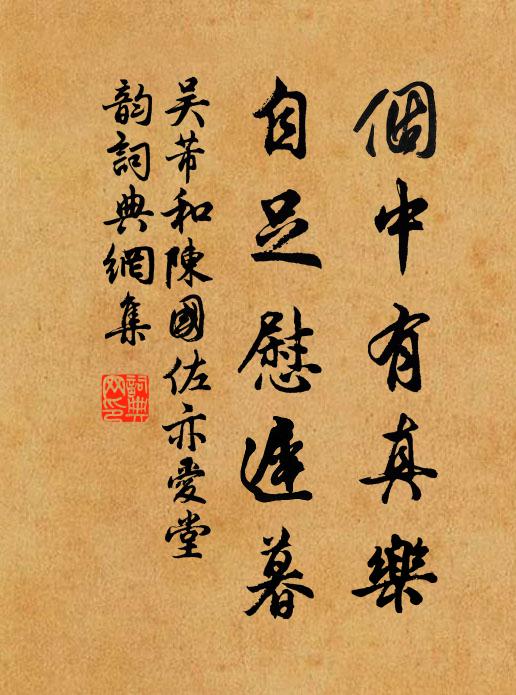 個中有真樂
自足慰遲暮
吳芾和陳國佐亦愛堂
韵詞典網集
詞典網印